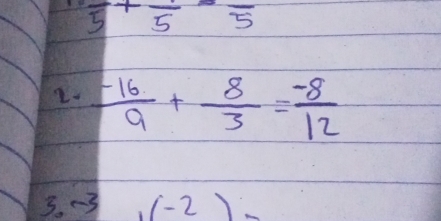 5 + 5 = 5
2. -16/9 + 8/3 = -8/12
3. -3 , (-2) =